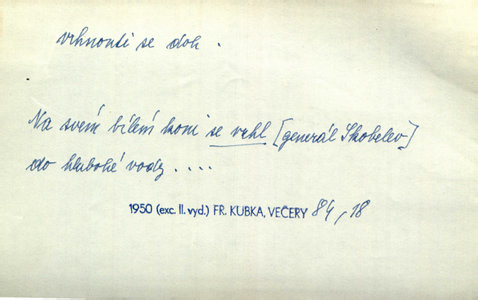 vrhnouti se do h .
Na svém bílém koni se vrhl [generál Skobelev]
do hluboké vody ....
1950 (exc. II. vyd.) FR. KUBKA, VEČERY 84, 18